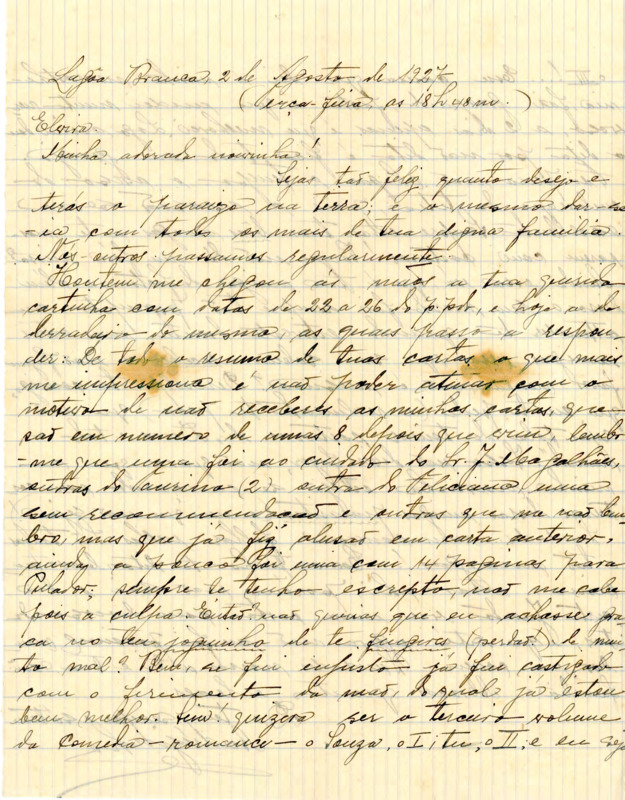 Lagôa Branca, 2 de Agosto de 1927
(Terça-feira, as 18h 48m.)
Elvira.
Minha adorada noivinha!
Sejas tão feliz quanto desejo e
terás o paraizo na terra; e o mesmo dar-se
-ia com todos os mais de tua digna familia.
Nós-outros passamos regularmente.
Hontem me chegou ás mãos a tua querida
cartinha com datas de 22 a 26 do p.pdo, e hoje a de
derradeiro do mesmo, as quais passo a respon-
der: De todo o resumo de tuas cartas o que mais
me impressiona é não poder atinar com o
motivo de não receberes as minhas cartas, que
são em numero de umas 8 depois que vim, lembro
-me que uma foi ao cuidado do Sr. J. Magalhães,
outras do Laurino (2) outra do Feliciano, uma
sem recommendação e outras que me não lem-
bro, mas que já fiz alusão em carta anterior,
ainda a pouco foi uma com 14 paginas para
Pulador; sempre te tenho escripto, não me cabe
pois a culpa. Então? não querias que eu achasse
no teu joguinho de te fingires (perdão!) de mui-
to mal? Bem, se fui injusto já fui castigado
com o ferimento da mão, do qual já estou
bem melhor. Sim! quizera ser o terceiro volume
da comedia-romance - o Souza, o I; tu, o II; e eu seja